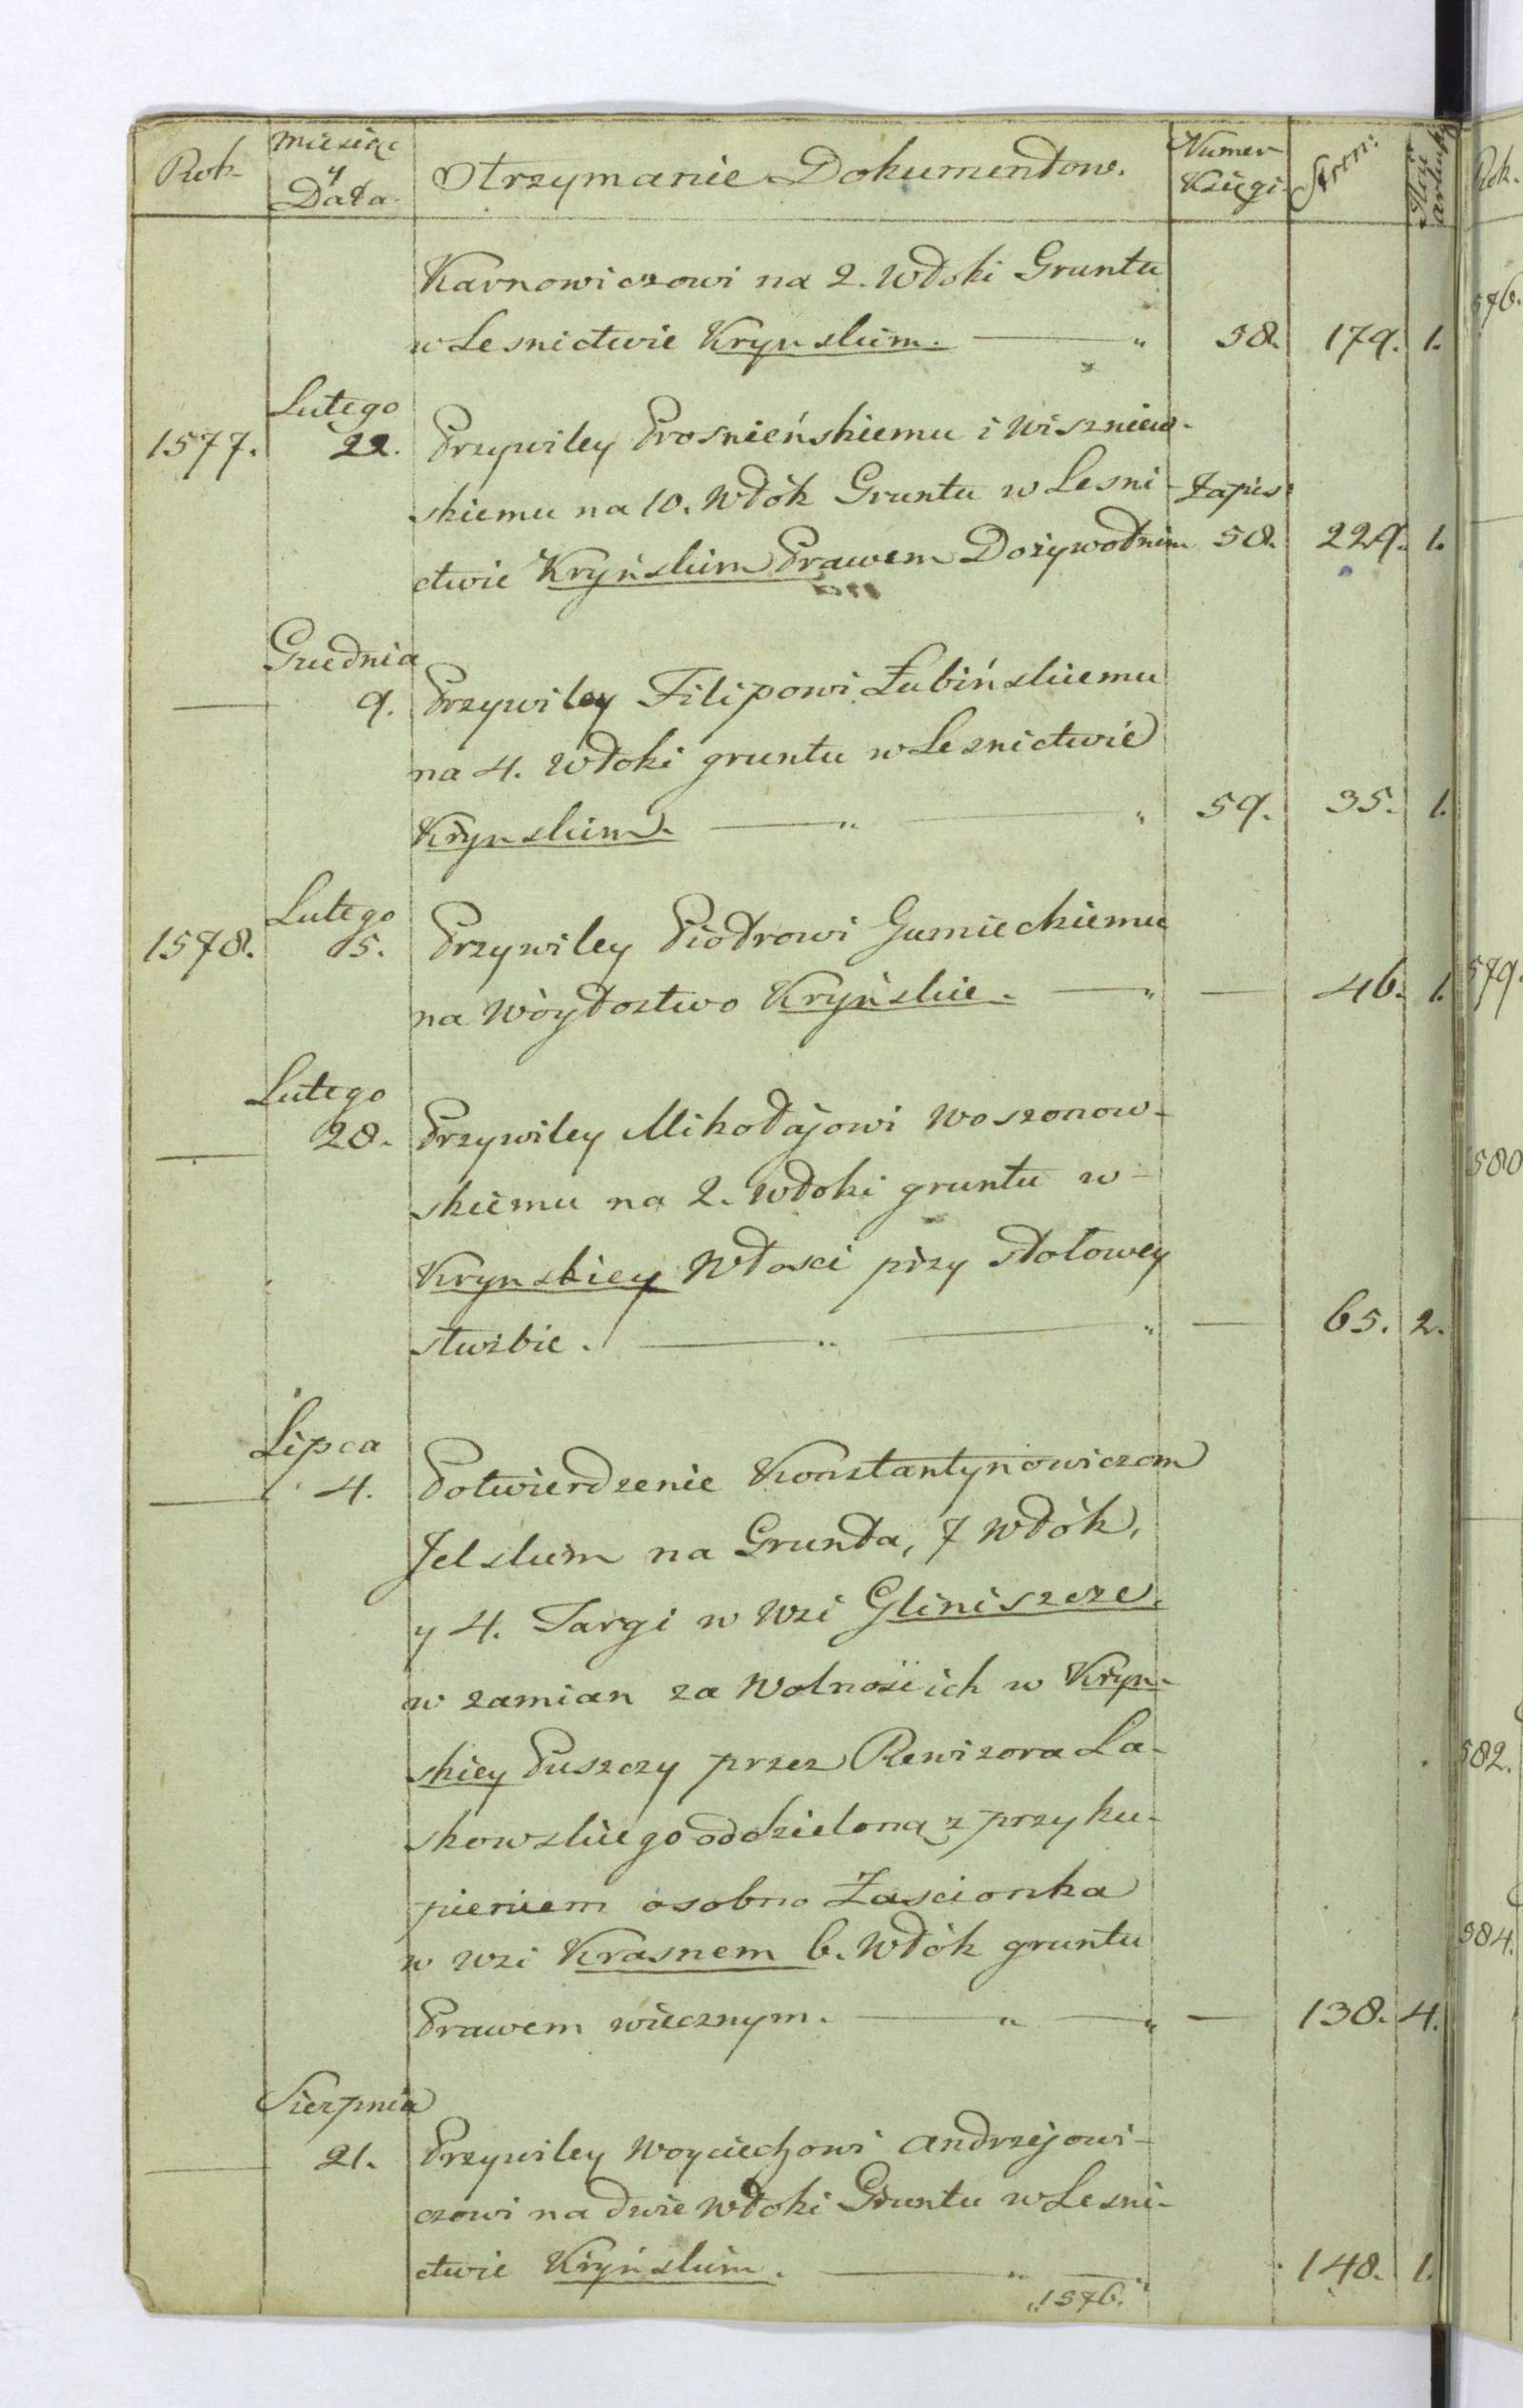 Rok
Miesiąc y Data
Otrzymanie Dokumentow.
Numer Księgi
Stron:
Karnowiczowi na 2. Włoki Gruntu
w Lesnictwie Krynskim. — " 58. 179. 1.
1577. Lutego 22. Przywiley Prosnieńskiemu i Wiszniew-
skiemu na 10. Włók Gruntu w Lesni- Zapis:
ctwie Kryńskim Prawem Dożywotnim 58. 229. 1.
— Grudnia 9. Przywiley Filipowi Łubińskiemu
na 4. Włoki gruntu w Lesnictwie
Krynskim. — " — " 59. 35. 1.
1578. Lutego 5. Przywiley Piotrowi Gumieckiemu
na Wóytostwo Kryńskie. — " — 46. 1.
— Lutego 28. Przywiley Mikołajowi Woszonow-
skiemu na 2. Włoki gruntu w
Krynskiey Włosci przy stołowey
słuzbie. — " — " — 65. 2.
— Lipca 4. Potwierdzenie Konstantynowiczom
Jelskim na Grunta, 7 Włók,
y 4. Targi w Wsi Gliniszcze,
w zamian za Wolność ich w Kryn-
skiey Puszczy przez Rewizora La-
skowskiego oddzieloną z przyku-
pieniem osobno Zascionka
w wsi Krasnem 6. Włók gruntu
Prawem wiecznym. — " — " — 138. 4.
— Sierpnia 21. Przywiley Woyciechowi Andrzejowi-
czowi na dwie Włoki Gruntu w Lesni-
ctwie Kryńskim. — " — " 148. 1.
"1576."
Rok.
576.
579.
580
582.
584.